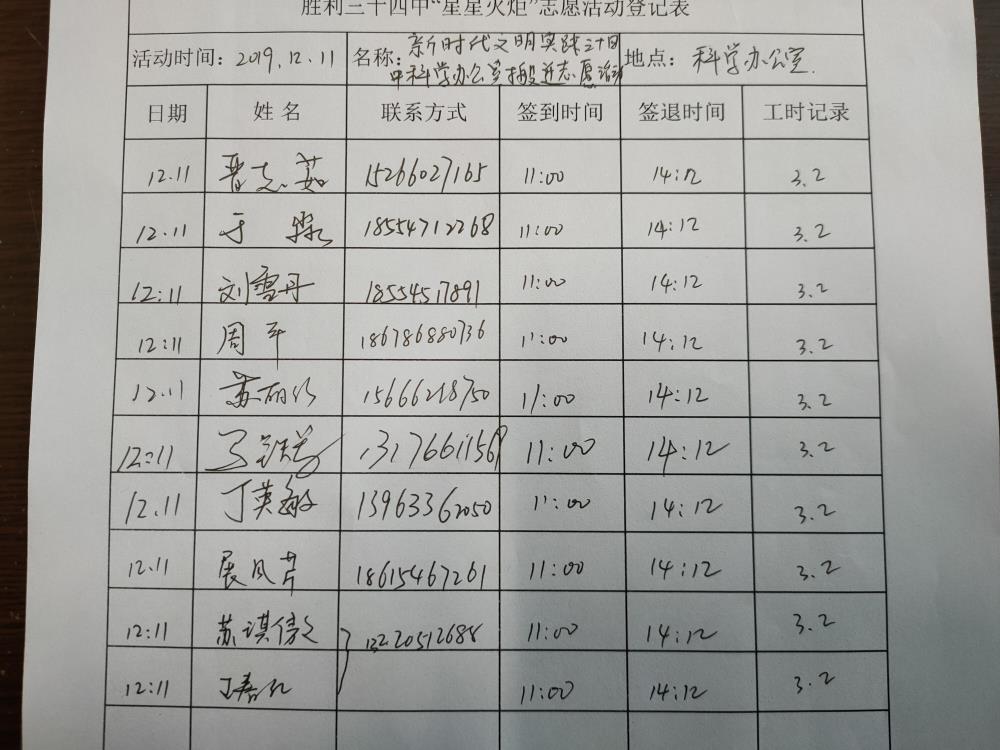 胜利三十四中“星星火炬”志愿活动登记表
活动时间：2019.12.11 名称：新时代文明实践三十四 地点：科学办公室.
中科学办公室搬进志愿活动
日期 姓名 联系方式 签到时间 签退时间 工时记录
12.11 15266027165 11:00 14:12 3.2
12.11 于 18554712268 11:00 14:12 3.2
12:11 刘雪丹 18554517891 11:00 14:12 3.2
12:11 周平 186786880736 11:00 14:12 3.2
12.11 苏丽红 15666218750 11:00 14:12 3.2
12:11 11:00 14:12 3.2
12.11 丁英敏 13963362050 11:00 14:12 3.2
12.11 展凤芹 18615467261 11:00 14:12 3.2
12:11 苏琪 13220512688 11:00 14:12 3.2
12:11 11:00 14:12 3.2